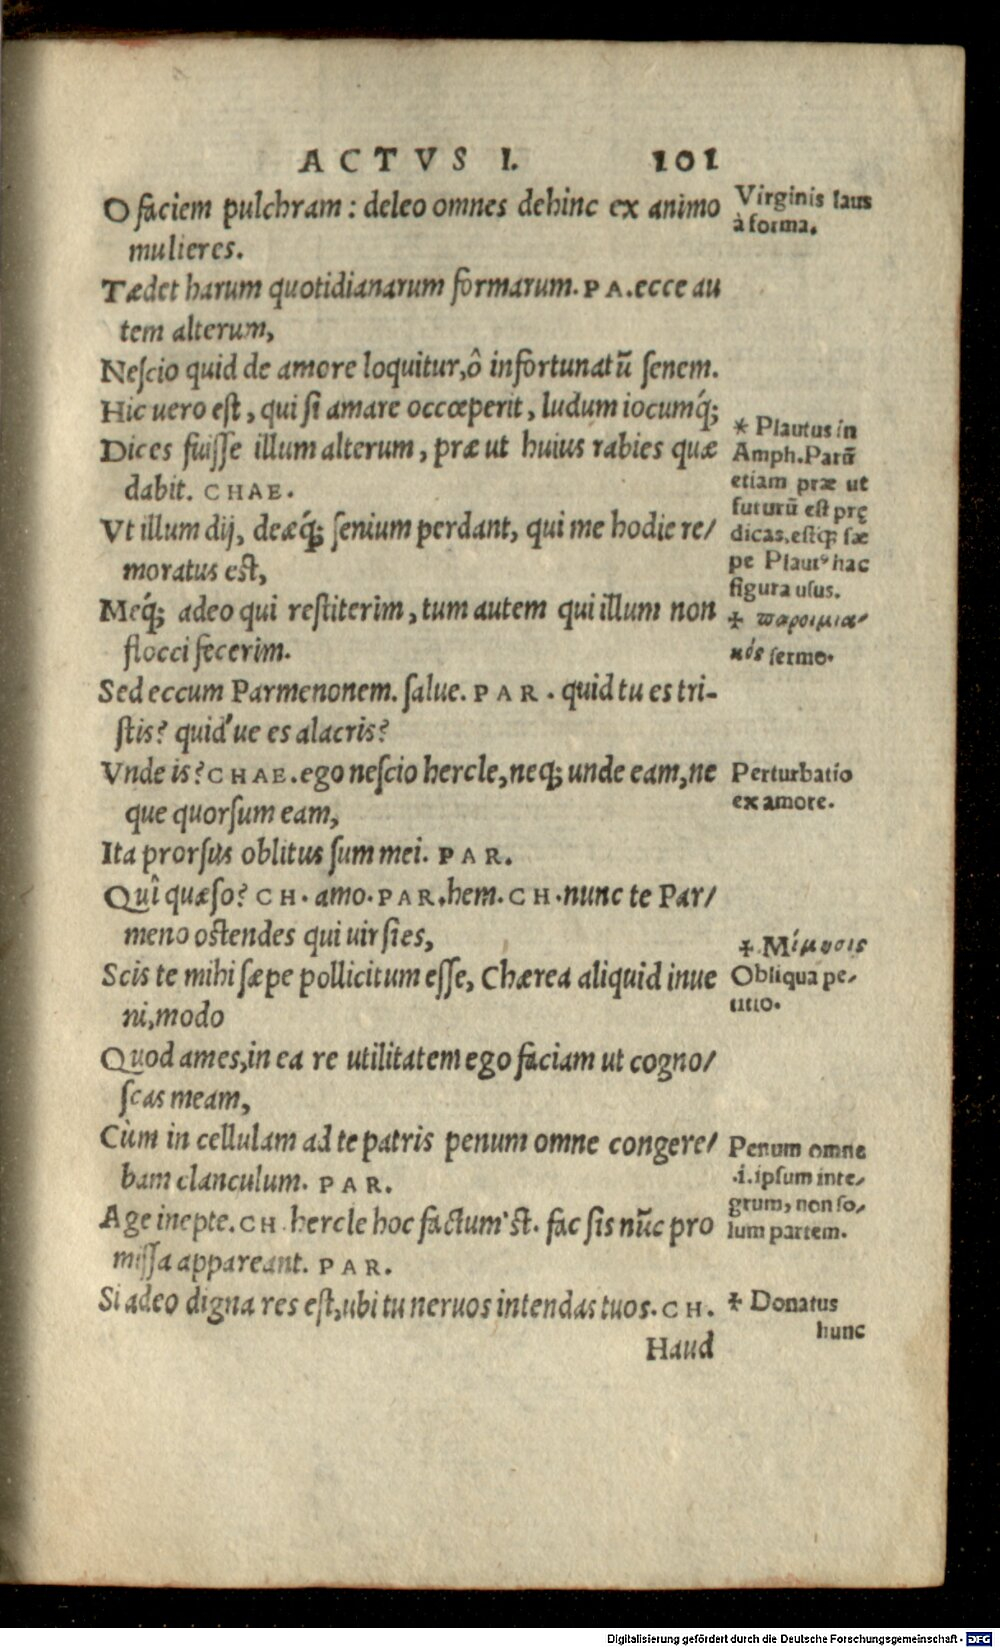 ACTVS I. 101
O faciem pulchram: deleo omnes dehinc ex animo
mulieres.
Tædet harum quotidianarum formarum. PA. ecce au
tem alterum,
Neſcio quid de amore loquitur, ô infortunatū ſenem.
Hic uero eſt, qui ſi amare occœperit, ludum iocumq́;
Dices fuiſſe illum alterum, præ ut huius rabies quæ
dabit. CHAE.
Vt illum dij, deæq́; ſenium perdant, qui me hodie re/
moratus eſt,
Meq́; adeo qui reſtiterim, tum autem qui illum non
flocci fecerim.
Sed eccum Parmenonem. ſalue. PAR. quid tu es tri-
ſtis? quid'ue es alacris?
Vnde is? CHAE. ego neſcio hercle, neq; unde eam, ne
que quorſum eam,
Ita prorſus oblitus ſum mei. PAR.
Quî quæſo? CH. amo. PAR. hem. CH. nunc te Par/
meno oſtendes qui uir ſies,
Scis te mihi ſæpe pollicitum eſſe, Chærea aliquid inue
ni, modo
Quod ames, in ea re utilitatem ego faciam ut cogno/
ſcas meam,
Cùm in cellulam ad te patris penum omne congere/
bam clanculum. PAR.
Age inepte. CH. hercle hoc factum'ſt. fac ſis nūc pro
miſſa appareant. PAR.
Si adeo digna res eſt, ubi tu neruos intendas tuos. CH.
Haud
Virginis laus
à forma.
* Plautus in
Amph. Parū
etiam præ ut
futurū eſt prę
dicas, eſtq; ſæ
pe Plautꝰ hac
figura uſus.
✢ παροιμια/
κός ſermo.
Perturbatio
ex amore.
✢ Μίμησις
Obliqua pe/
titio.
Penum omne
.i. ipſum inte/
grum, non ſo/
lum partem.
✢ Donatus
hunc
Digitalisierung gefördert durch die Deutsche Forschungsgemeinschaft - DFG